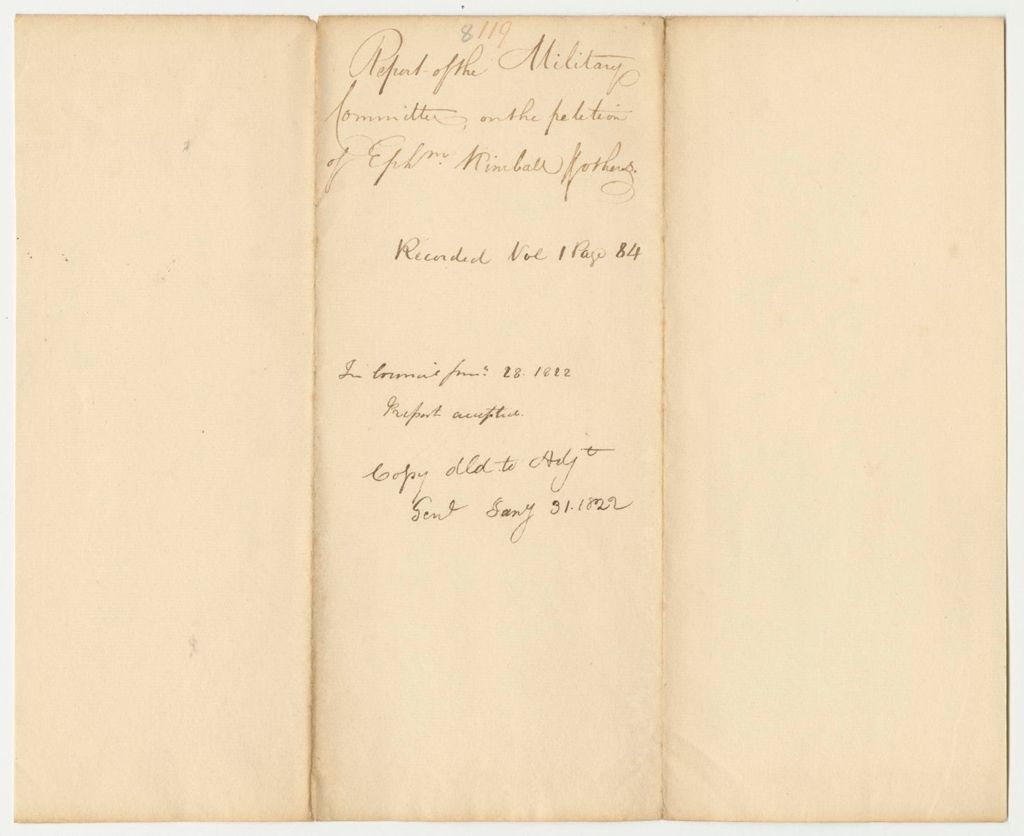 8119
Report of the Military
Committee, on the petition
of Ephm. Kimball & others.
Recorded Vol 1 Page 84
In Council Jany. 28. 1822
Report accepted.
Copy dld to Adjt
Genl Jany 31. 1822